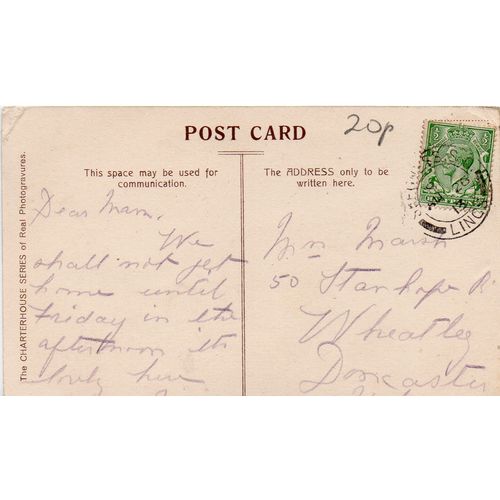 POST CARD
20p
This space may be used for
communication.
The ADDRESS only to be
written here.
The CHARTERHOUSE SERIES of Real Photogravures.
Dear Mam,
We
shall not get
home until
Friday in the
afternoon its
lovely here
Mrs Marsh
50 Stanhope R
Wheatley
Doncaster
LINC